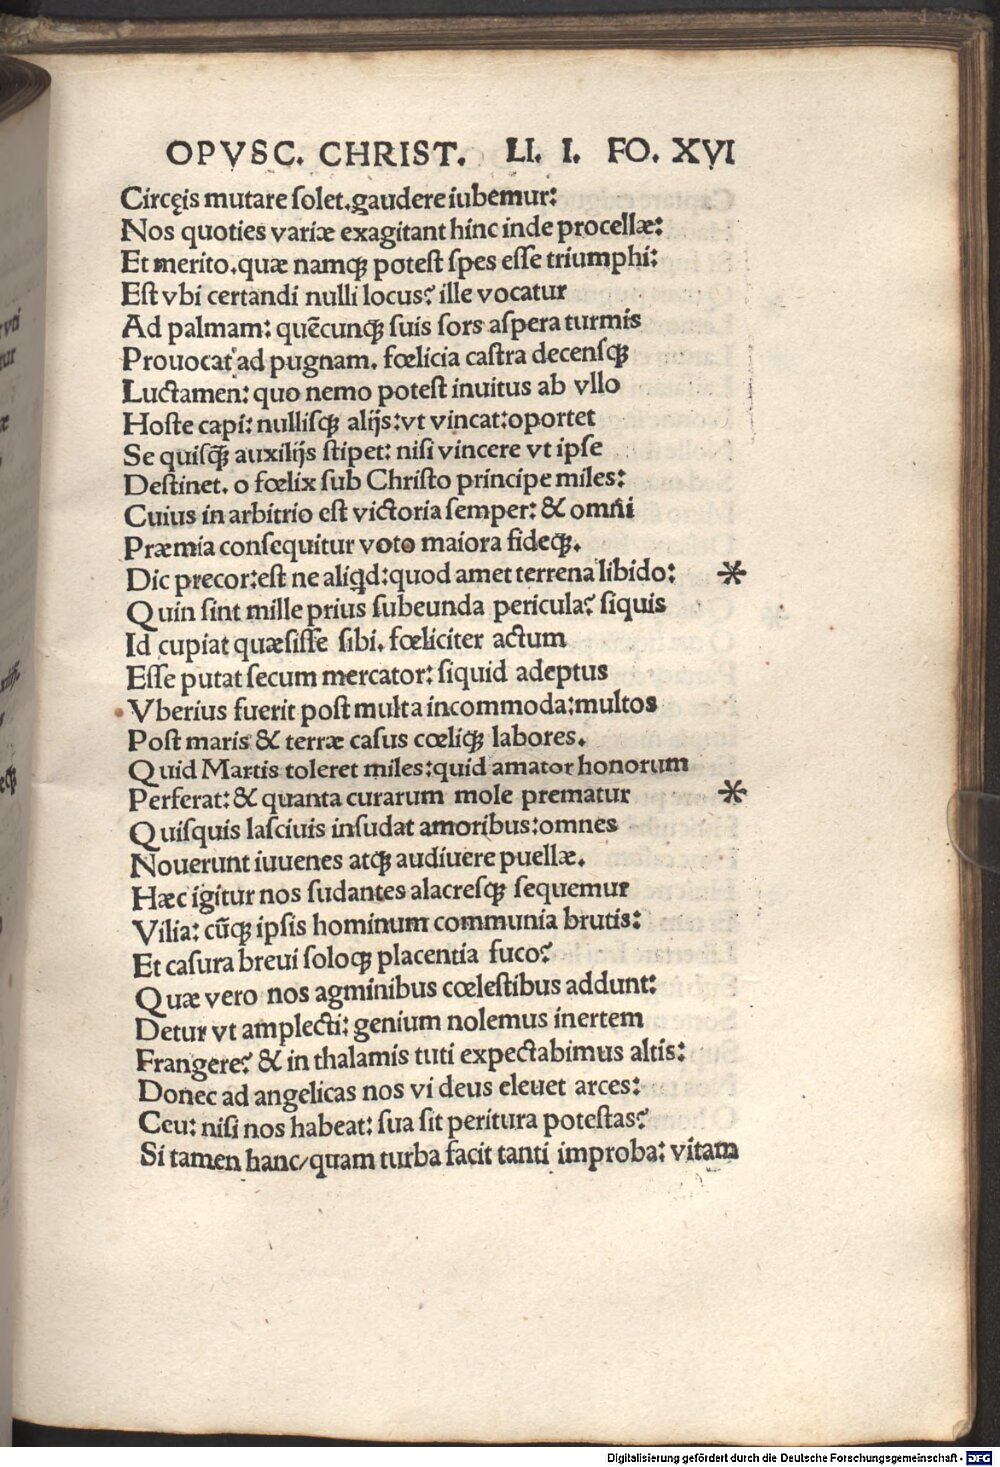 OPVSC. CHRIST. LI. I. FO. XVI
Circęis mutare ſolet.gaudere iubemur:
Nos quoties variæ exagitant hinc inde procellæ:
Et merito.quæ namqꝫ poteſt ſpes eſſe triumphi:
Eſt vbi certandi nulli locus? ille vocatur
Ad palmam: quēcunqꝫ ſuis ſors aſpera turmis
Prouocat ad pugnam. fœlicia caſtra decenſqꝫ
Luctamen: quo nemo poteſt inuitus ab vllo
Hoſte capi: nulliſqꝫ alijs: vt vincat: oportet
Se quiſqꝫ auxilijs ſtipet: niſi vincere vt ipſe
Deſtinet. o fœlix ſub Chriſto principe miles:
Cuius in arbitrio eſt victoria ſemper: & omni
Præmia conſequitur voto maiora fideqꝫ.
Dic precor: eſt ne aliqd: quod amet terrena libido: *
Quin ſint mille prius ſubeunda pericula? ſiquis
Id cupiat quæſiſſe ſibi. fœliciter actum
Eſſe putat ſecum mercator: ſiquid adeptus
Vberius fuerit poſt multa incommoda: multos
Poſt maris & terræ caſus cœliqꝫ labores.
Quid Martis toleret miles: quid amator honorum
Perferat: & quanta curarum mole prematur *
Quiſquis laſciuis inſudat amoribus: omnes
Nouerunt iuuenes atqꝫ audiuere puellæ.
Hæc igitur nos ſudantes alacreſqꝫ ſequemur
Vilia: cūqꝫ ipſis hominum communia brutis:
Et caſura breui ſoloqꝫ placentia fuco?
Quæ vero nos agminibus cœleſtibus addunt:
Detur vt amplecti: genium nolemus inertem
Frangere? & in thalamis tuti expectabimus altis:
Donec ad angelicas nos vi deus eleuet arces:
Ceu: niſi nos habeat: ſua ſit peritura poteſtas?
Si tamen hanc/quam turba facit tanti improba: vitam
Digitalisierung gefördert durch die Deutsche Forschungsgemeinschaft - DFG